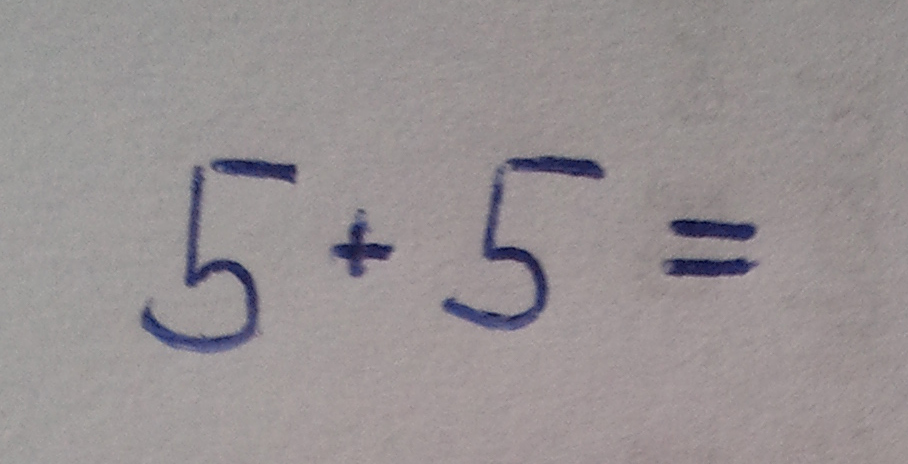 5 + 5 =